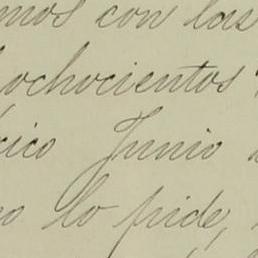 mos con las
ochocientos
xico Junio
no lo pide,